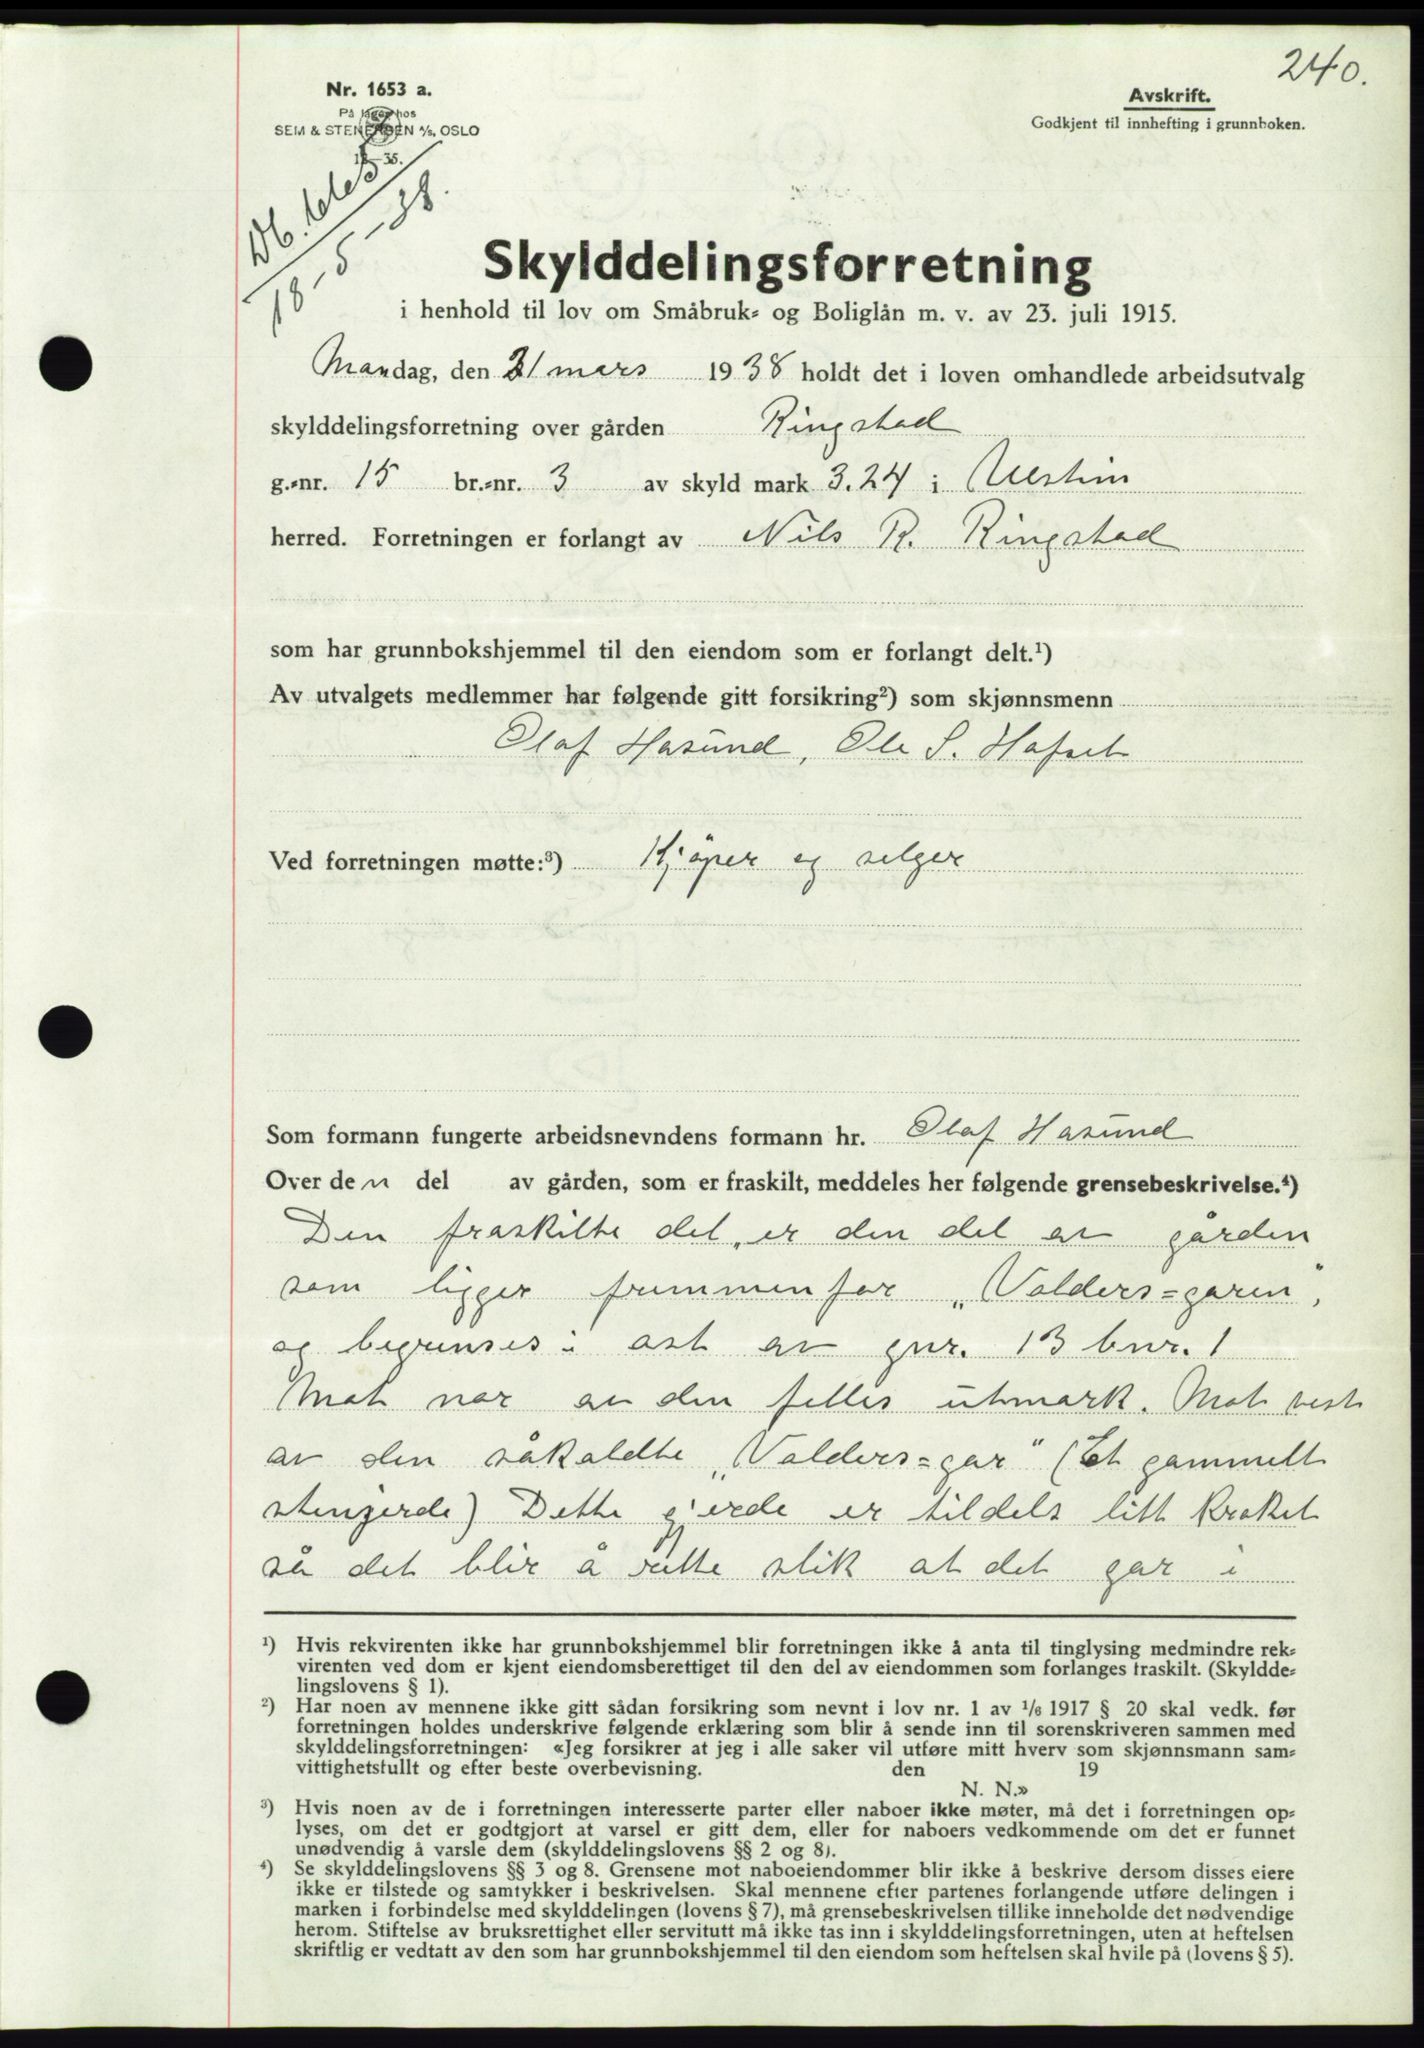 240.
Nr. 1653 a.
På lager hos
SEM & STENERSEN A/S, OSLO
12—35.
Avskrift.
Godkjent til innhefting i grunnboken.
18-5-38.
Skylddelingsforretning
i henhold til lov om Småbruk= og Boliglån m. v. av 23. juli 1915.
Mandag, den 21 mars 1938 holdt det i loven omhandlede arbeidsutvalg
skylddelingsforretning over gården Ringstad
g.=nr. 15 br.=nr. 3 av skyld mark 3.24 i Ulstein
herred. Forretningen er forlangt av Nils R. Ringstad
som har grunnbokshjemmel til den eiendom som er forlangt delt.¹)
Av utvalgets medlemmer har følgende gitt forsikring²) som skjønnsmenn
Olaf Hasund, Ole S. Hafset
Ved forretningen møtte:³) Kjøper og selger
Som formann fungerte arbeidsnevndens formann hr. Olaf Hasund
Over den del av gården, som er fraskilt, meddeles her følgende grensebeskrivelse.⁴)
Den fraskilte del er den del av gården
som ligger fremmenfor „Valders=garen",
og begrenses i ost av gnr. 13 bnr. 1
Mot nor av den felles utmark. Mot vest
av den såkaldte „Valders=gar" (Et gammelt
stengjerde) Dette gjerde er tildels litt kroket
så det blir å rette slik at det gar i
¹) Hvis rekvirenten ikke har grunnbokshjemmel blir forretningen ikke å anta til tinglysing medmindre rek=
virenten ved dom er kjent eiendomsberettiget til den del av eiendommen som forlanges fraskilt. (Skyldde=
lingslovens § 1).
²) Har noen av mennene ikke gitt sådan forsikring som nevnt i lov nr. 1 av ¹/₆ 1917 § 20 skal vedk. før
forretningen holdes underskrive følgende erklæring som blir å sende inn til sorenskriveren sammen med
skylddelingsforretningen: «Jeg forsikrer at jeg i alle saker vil utføre mitt hverv som skjønnsmann sam=
vittighetsfullt og efter beste overbevisning. den 19
N. N.»
³) Hvis noen av de i forretningen interesserte parter eller naboer ikke møter, må det i forretningen op=
lyses, om det er godtgjort at varsel er gitt dem, eller for naboers vedkommende om det er funnet
unødvendig å varsle dem (skylddelingslovens §§ 2 og 8).
⁴) Se skylddelingslovens §§ 3 og 8. Grensene mot naboeiendommer blir ikke å beskrive dersom disses eiere
ikke er tilstede og samtykker i beskrivelsen. Skal mennene efter partenes forlangende utføre delingen i
marken i forbindelse med skylddelingen (lovens § 7), må grensebeskrivelsen tillike inneholde det nødvendige
herom. Stiftelse av bruksrettighet eller servitutt må ikke tas inn i skylddelingsforretningen, uten at heftelsen
skriftlig er vedtatt av den som har grunnbokshjemmel til den eiendom som heftelsen skal hvile på (lovens § 5).